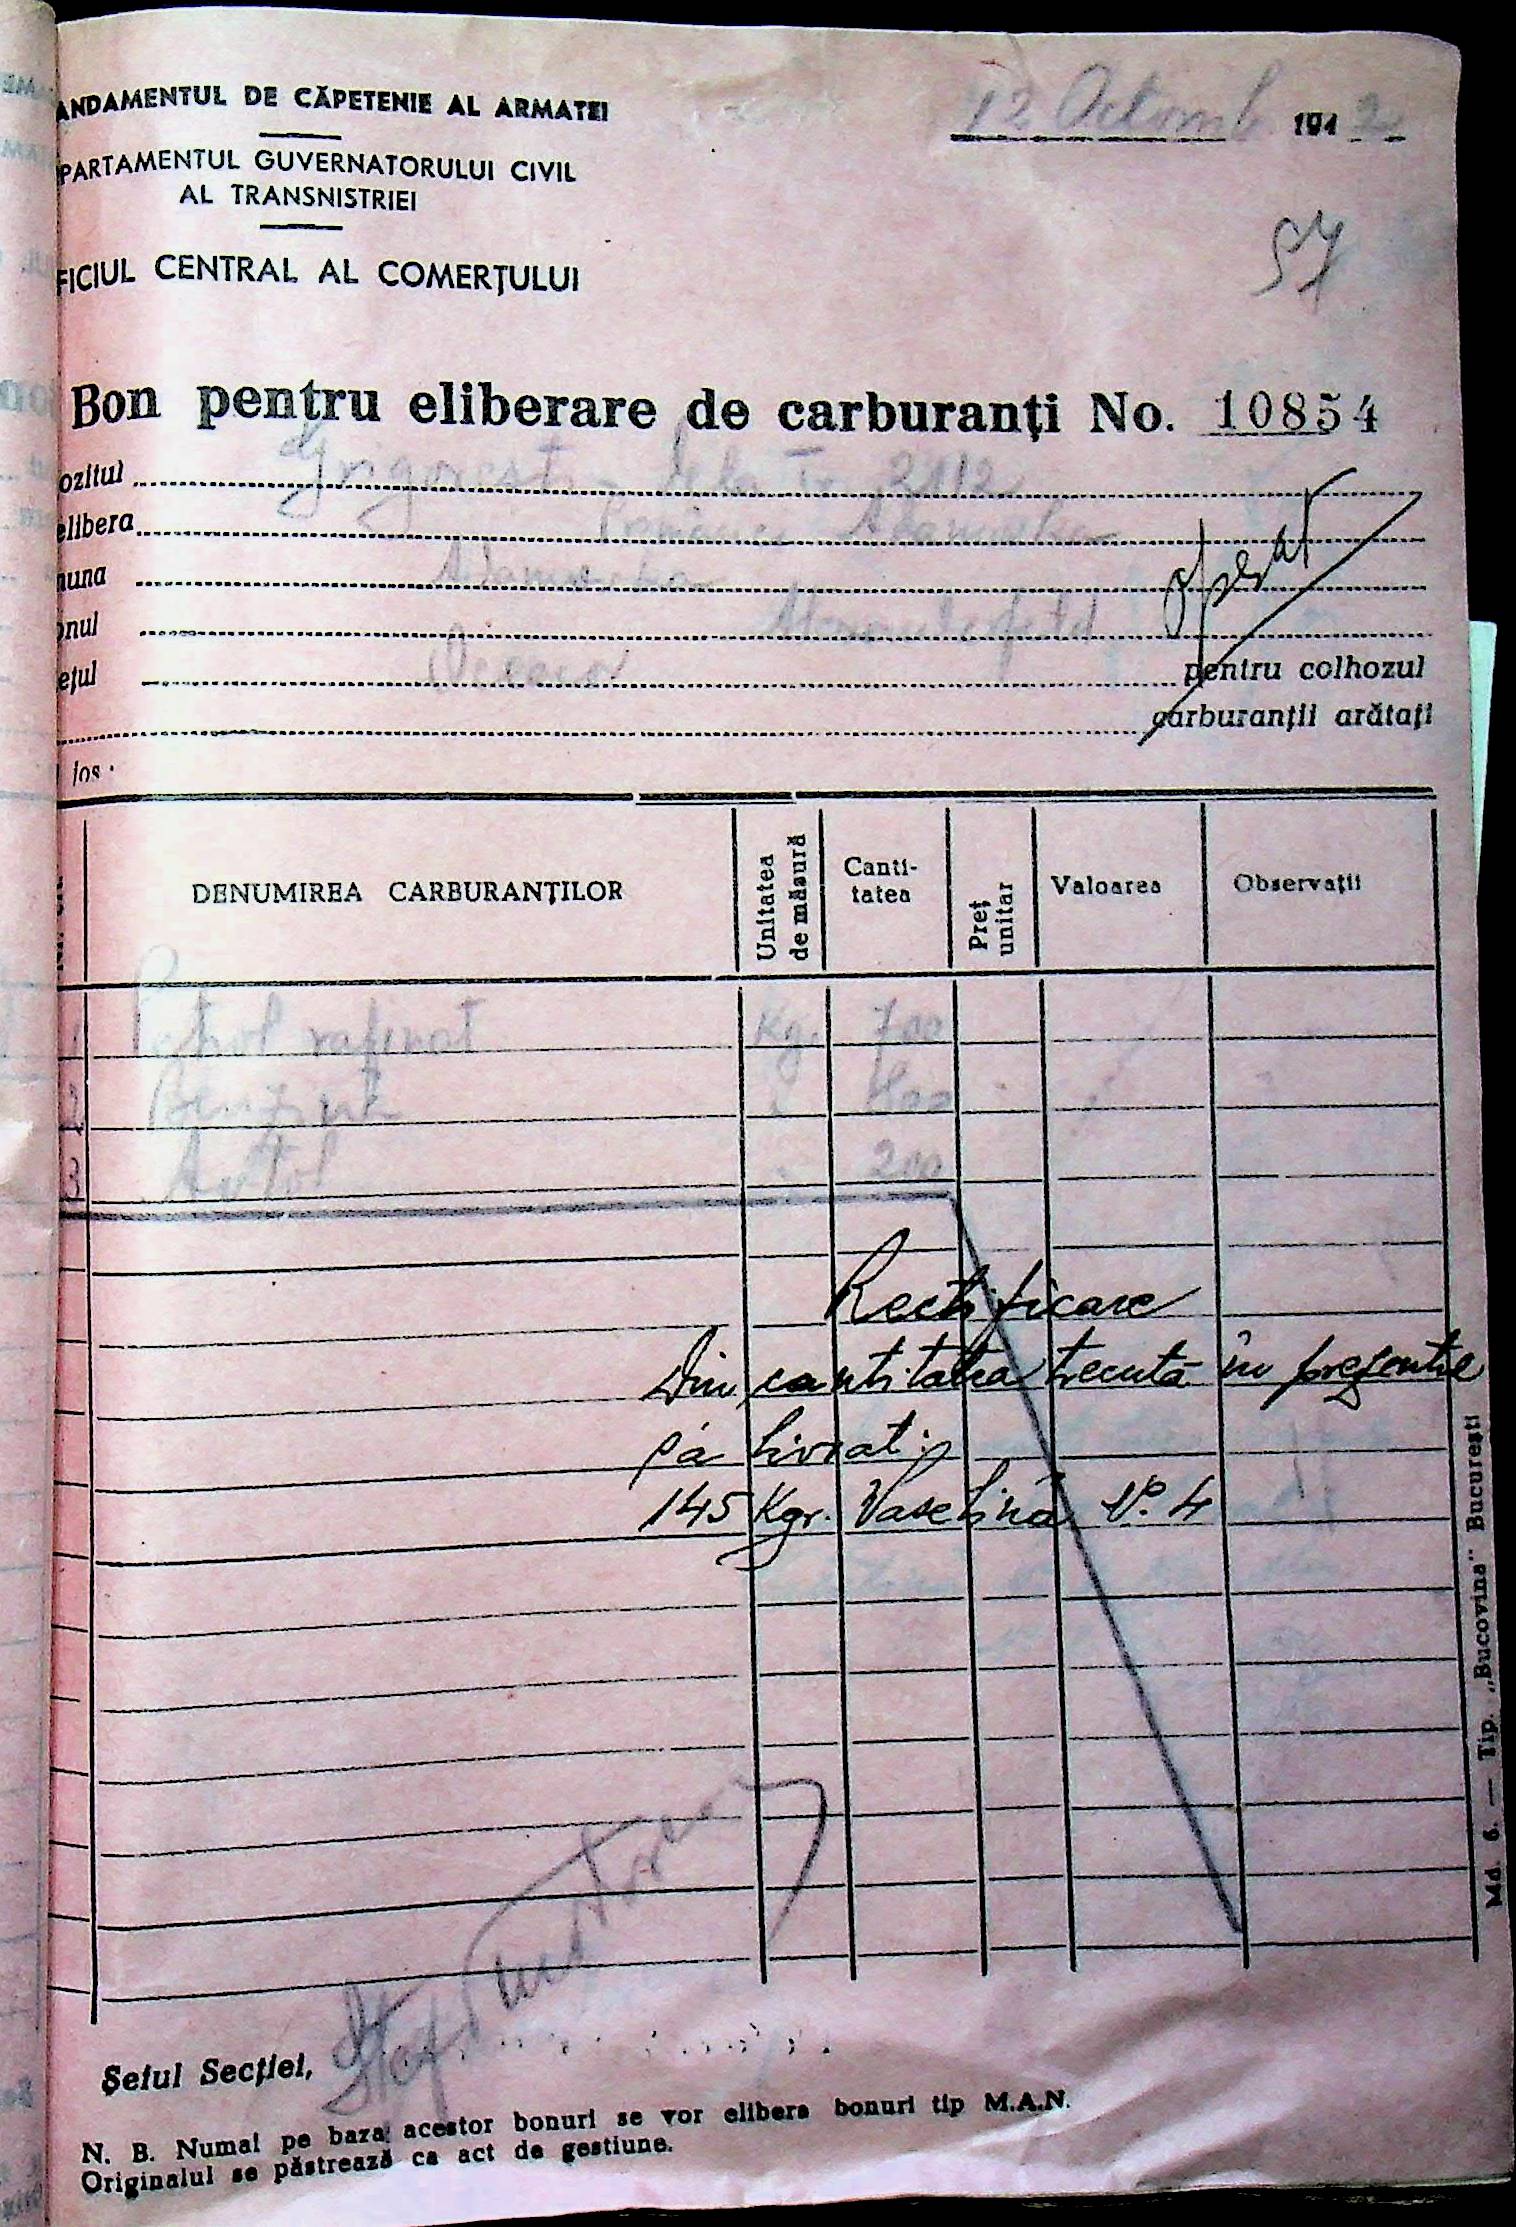 ANDAMENTUL DE CĂPETENIE AL ARMATEI
12 Octomb 1942
PARTAMENTUL GUVERNATORULUI CIVIL
AL TRANSNISTRIEI
57
FICIUL CENTRAL AL COMERȚULUI
Bon pentru eliberare de carburanți No. 10854
ozitul
elibera
muna
operat
onul
ețul pentru colhozul
carburanții arătați
jos
DENUMIREA CARBURANȚILOR Unitatea de măsură Canti-tatea Preț unitar Valoarea Observații
1 Petrol rafinat Kg. 700
2 Benzină 400
3 Avtol 200
Rectificare
Din cantitatea trecută în prezentul
s'a livrat:
145 Kgr. Vaselină No. 4
Șeful Secției,
N. B. Numai pe baza acestor bonuri se vor elibera bonuri tip M.A.N.
Originalul se păstrează ca act de gestiune.
Md. 6. — Tip. „Bucovina" București